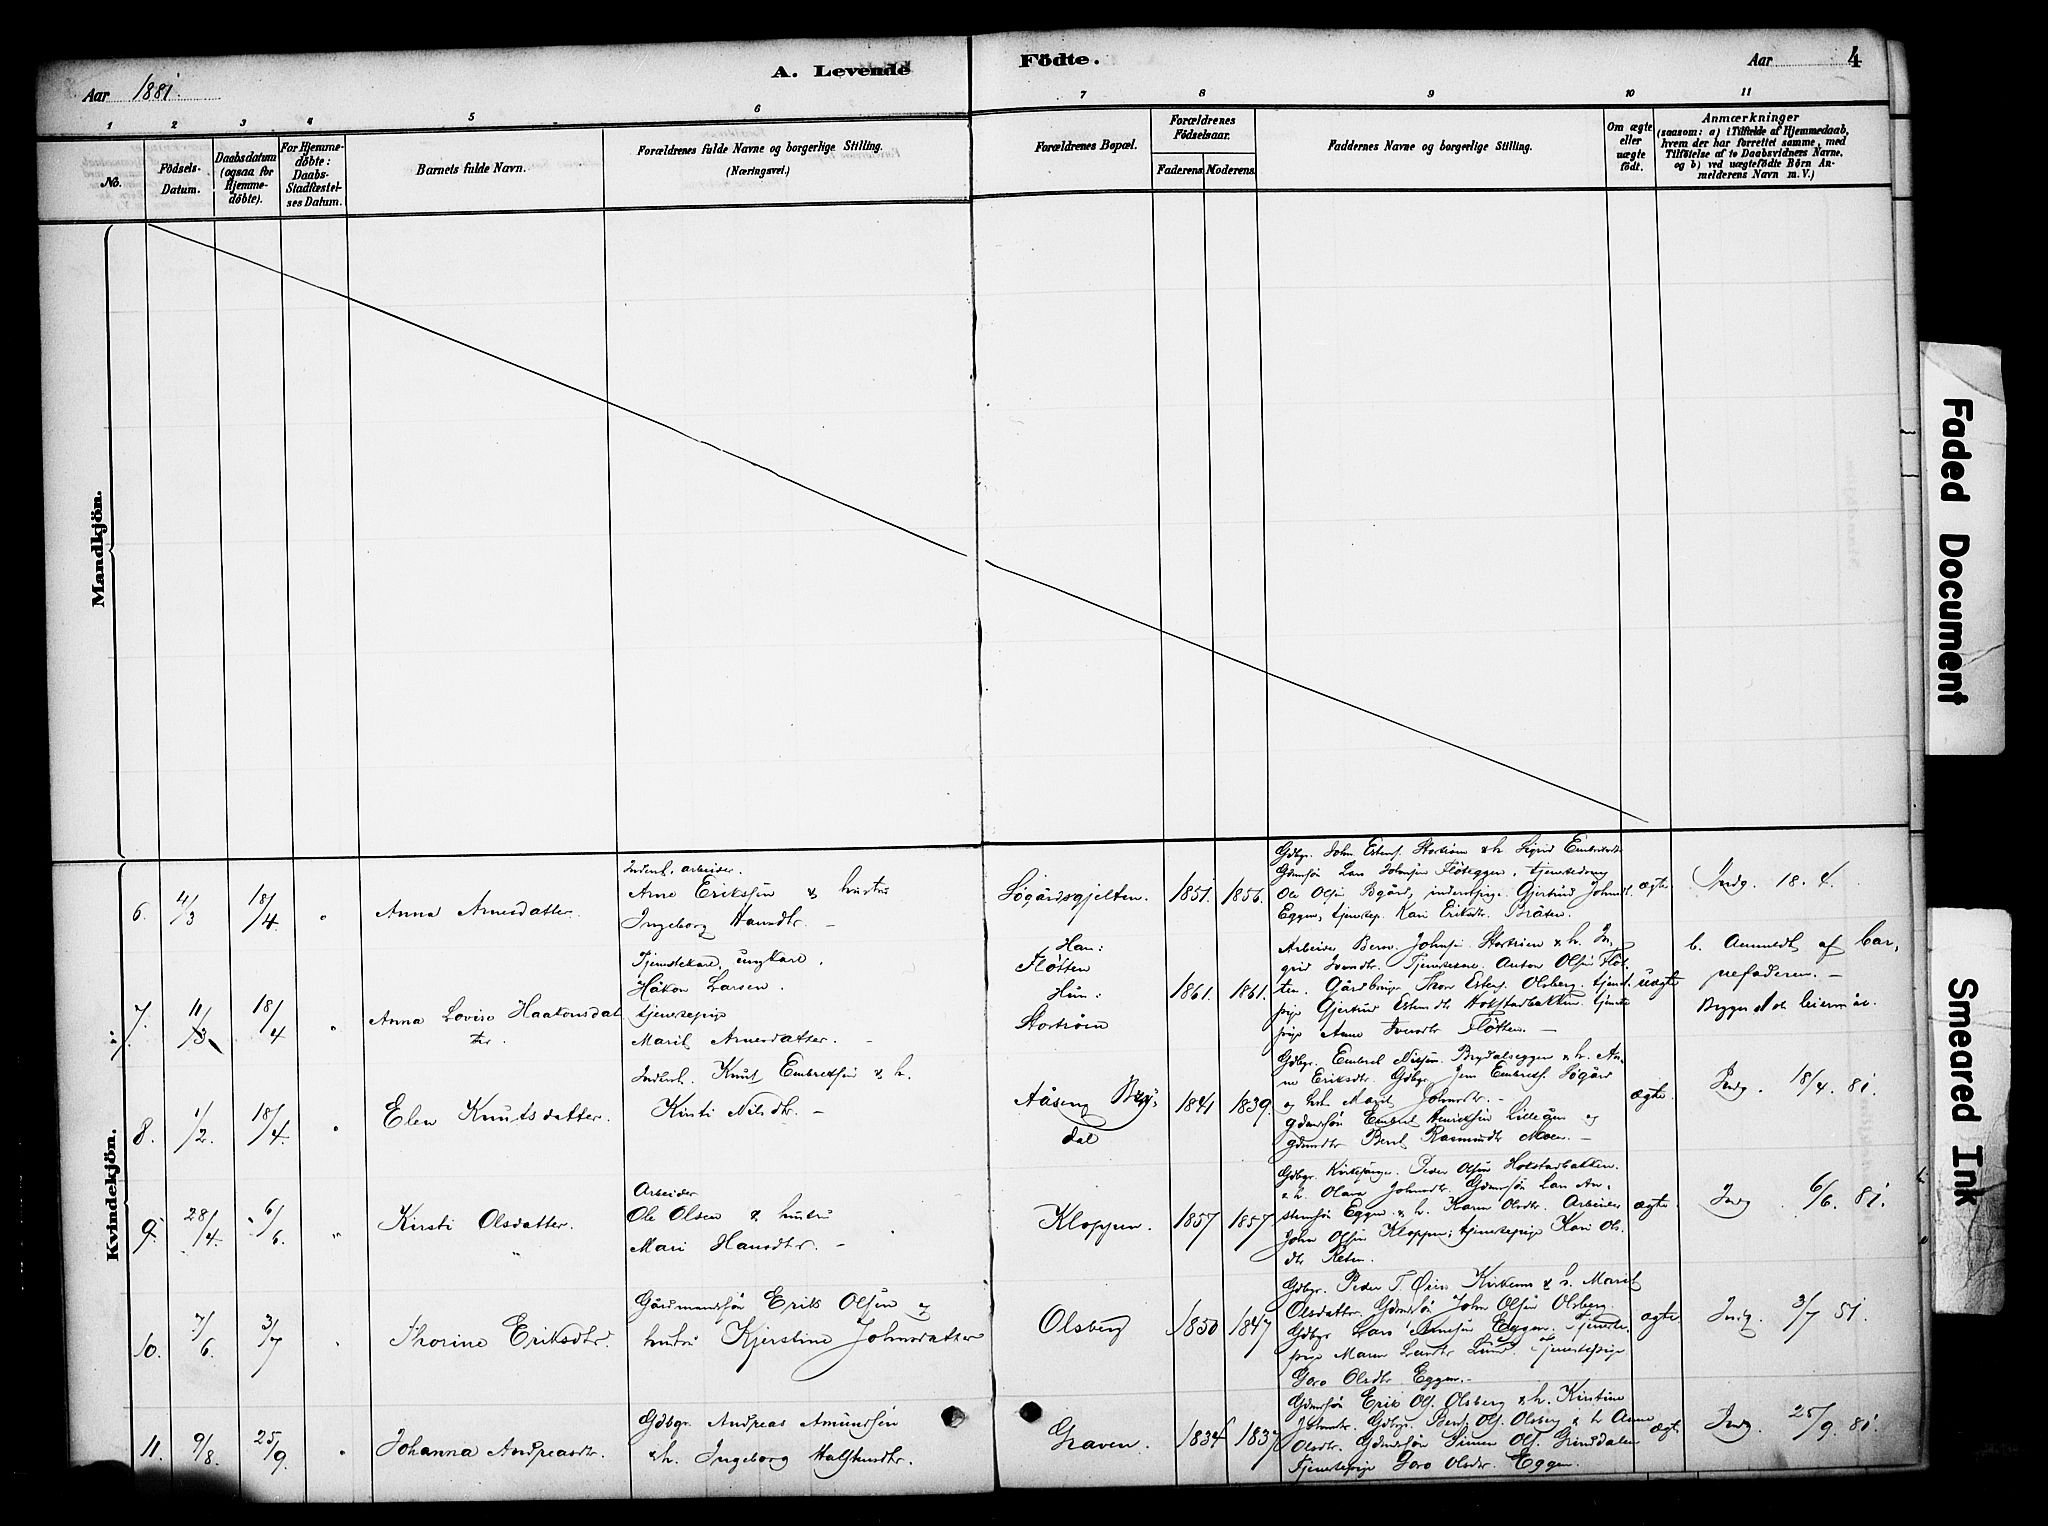 A. Levende
Födte.
Aar 1881.
Aar
4
1 2 3 4 5 6 7 8 9 10 11
No.
Födsels-
Datum.
Daabsdatum
(ogsaa for
Hjemme-
døbte).
For Hjemme-
døbte:
Daabs-
Stadfæstel-
ses Datum.
Barnets fulde Navn.
Forældrenes fulde Navne og borgerlige Stilling.
(Næringsvei.)
Forældrenes Bopæl.
Forældrenes
Födselsaar.
Faderens.
Moderens.
Faddernes Navne og borgerlige Stilling.
Om ægte
eller
uægte
født.
Anmærkninger
(saasom: a) i Tilfælde af Hjemmedaab,
hvem der har forrettet samme, med
Tilføielse af to Daabsvidners Navne,
og b) ved uægtefödte Börn An-
melderens Navn m. V.)
Mandkjön.
Kvindekjön.
6. 4/3 18/4 "
Anna Arnesdatter.
Inderst. arbeider.
Arne Eriksøn & hustru
Ingeborg Hansdtr. -
Søgårdsgjelten.
1851. 1856.
Gdbgr. John Estens. Storstrøm & h. Sigrid Embretsdtr
Gdmsøn Lars Johnsøn Fløteggen, tjenestedreng
Ole Olsøn Bgård, inderstpige Gjertrud Johnsdt.
Eggen, tjenestep. Kari Eriksdtr. Bråten.
ægte
Indg. 18. 4.
7. 11/3 18/4 "
Anna Lovise Haakonsdat
ter.
Tjenestekarl, ungkarl,
Håkon Larsen.
tjenestepige
Marit Arnesdatter. -
Han:
Fløtten
Hun:
Storstrøm
1861. 1861.
Arbeider Bern. Johnsøn Storstrøm & h. In-
grid Iversdtr. Tjenestekarl Anton Olsøn Fløt-
ten. Gårdbruger Thor Estens. Olsberg. tjenst.
pige Gjertrud Estensdtr Hokstadbakken. tjeneste
pige Anne Iversdtr Fløtten. -
uægte
b. Anmeldt af bar-
nefaderen. -
Begges 1ste leiermål.
8. 1/2 18/4 "
Elen Knutsdatter.
Inderst. Knut Embretsøn & h.
Kirsti Nilsdtr. -
Åsen, Bry-
dal
1841 1839.
Gdbgr. Embret Nilsøn Brydalseggen & h. An-
ne Eriksdtr. Gdbgr. Jens Embrets. Søgård
og h. Marit Johnsdtr. -
gdmsøn Embret Henriksøn Lilleåen og
gdmdtr Beret Rasmusdtr Moen. -
ægte.
Indg. 18/4. 81.
9. 28/4. 6/6. "
Kirsti Olsdatter.
Arbeider
Ole Olsen & hustru
Mari Hansdtr. -
Kloppen.
1857 1857
Gdbgr. Kirkesanger Peder Olsøn Hokstadbakken.
& h. Olava Johnsdtr. Gdmsøn Lars Ar-
stensøn Eggen & h. Karen Olsdtr. Arbeider
John Olsøn Kloppen; tjenestepige Kari Ols-
dtr Reten.
ægte
Indg. 6/6. 81.
10. 7/6 3/7 "
Thorine Eriksdtr.
Gårdmandssøn Eriks Olsøn og
hustru Kjerstine Johnsdatter
Olsberg
1850 1847
Gdbgr. Peder T. Øien Kirkemo & h. Marit
Olsdatter. Gdmdsøn John Olsøn Olsberg.
Gdbgr Lars Arnesøn Eggen. Tjeneste-
pige Maren Larsdtr Lund. Tjenestepige
Goro Olsdtr. Eggen. -
ægte
Indg. 3/7 81.
11. 9/8. 25/9. "
Johanna Andreasdtr.
Gdbgr. Andreas Amundsøn
& h. Ingeborg Halstensdtr.
Graven.
1834 1837
Gdmsøn Erik Ols. Olsberg & h. Kirstine
Johnsdtr. Gdbgr. Bent Ols. Olsberg & h Anne
Olsdtr. Gdmdsøn Simen Ols. Grindalen
Tjenestepige Goro Olsdtr. Eggen.
ægte.
Indg. 25/9. 81.
Faded Document
Smeared Ink